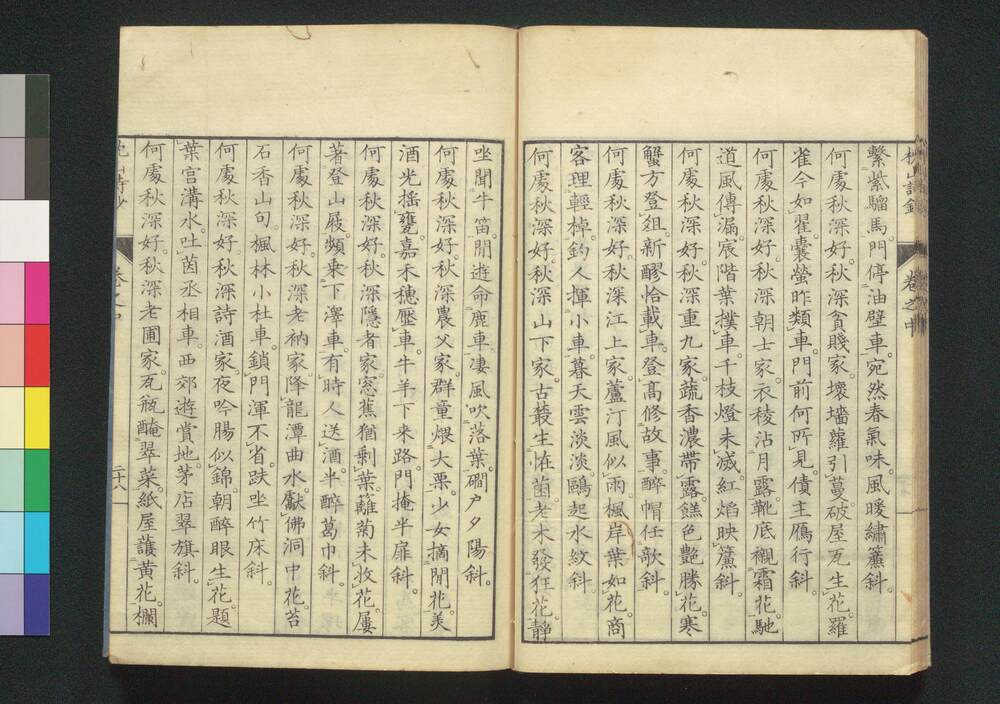 繫紫騮馬。門停油壁車。宛然春氣味。風暖繡簾斜。
何處秋深好。秋深貧賤家。壞墻蘿引蔓。破屋瓦生花。羅
雀今如翟。囊螢昨類車。門前何所見。債主鴈行斜。
何處秋深好。秋深朝士家。衣稜沾月露。靴底襯霜花。馳
道風傳漏。宸階葉撲車。千枝燈未滅。紅焰映簾斜。
何處秋深好。秋深重九家。蔬香濃帶露。餻色艷勝花。寒
蟹方登俎。新醪恰載車。登高修故事。醉帽任歌斜。
何處秋深好。秋深江上家。蘆汀風似雨。楓岸葉如花。商
客理輕棹。釣人揮小車。暮天雲淡淡。鷗起水紋斜。
何處秋深好。秋深山下家。古叢生恠菌。老木發狂花。靜
卷之中
坐聞牛笛。閒遊命鹿車。凄風吹落葉。磵戶夕陽斜。
何處秋深好。秋深農父家。群童煨大栗。少女摘閒花。美
酒光搖甕。嘉禾穗壓車。牛羊下来路。門掩半扉斜。
何處秋深好。秋深隱者家。窓蕉猶剩葉。籬菊未收花。屢
著登山屐。頻乗下澤車。有時人送酒。半醉葛巾斜。
何處秋深好。秋深老衲家。降龍潭曲水。獻佛洞中花。苔
石香山句。楓林小杜車。鎖門渾不省。趺坐竹床斜。
何處秋深好。秋深詩酒家。夜吟腸似錦。朝醉眼生花。題
葉宮溝水。吐茵丞相車。西郊遊賞地。茅店翠旗斜。
何處秋深好。秋深老圃家。瓦瓶醃翠菜。紙屋護黃花。欄
卷之中
二十八